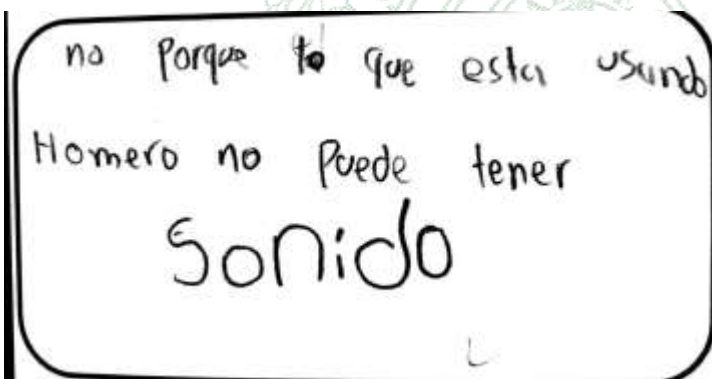 no Porque lo que esta usando
Homero no Puede tener
Sonido